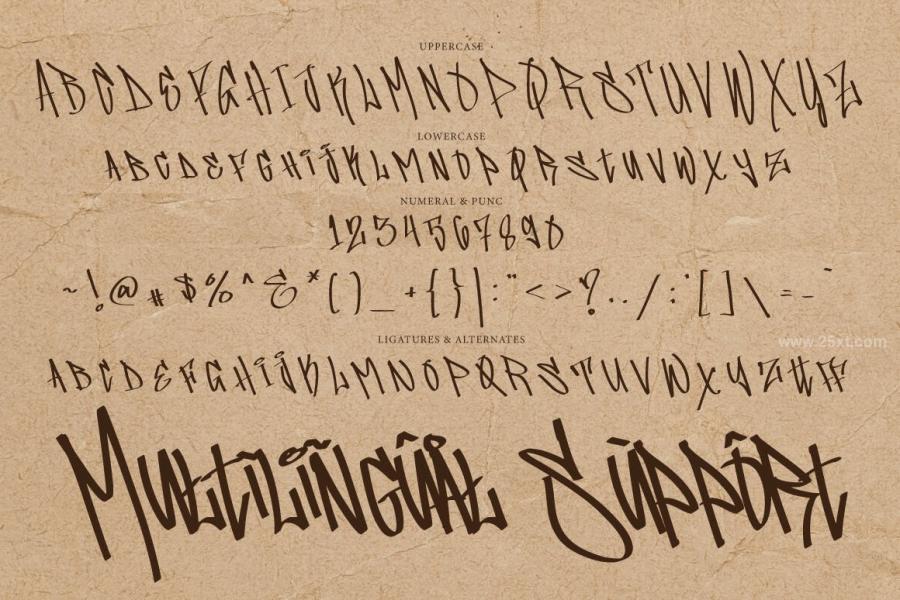 UPPERCASE
A B C D E F G H I J K L M N O P Q R S T U V W X Y Z
LOWERCASE
A B C D E F G H I J K L M N O P Q R S T U V W X Y Z
NUMERAL & PUNC
1 2 3 4 5 6 7 8 9 0
~ ! @ # $ % ^ & * ( ) _ + { } | : " < > ? . . / ; ' [ ] \ = - `
LIGATURES & ALTERNATES
www.25xt.com
A B C D E F G H I J K L M N O P Q R S T U V W X Y Z tt FF
MULTILÏÑGÛÅL SÙPPÔRT